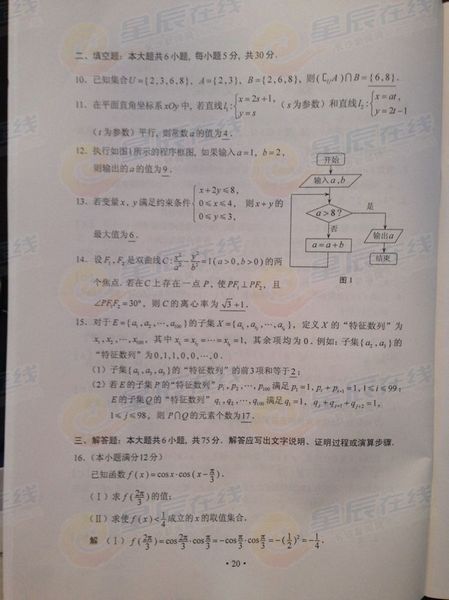 星辰在线
二、填空题：本大题共6小题，每小题5分，共30分.
10. 已知集合U={2,3,6,8}，A={2,3}，B={2,6,8}，则(∁UA)∩B={6,8}.
11. 在平面直角坐标系xOy中，若直线l₁:{x=2s+1, y=s （s为参数）和直线l₂:{x=at, y=2t-1
（t为参数）平行，则常数a的值为4.
12. 执行如图1所示的程序框图，如果输入a=1，b=2，
则输出的a的值为9.
开始
输入a,b
a>8?
是
否
a=a+b
输出a
结束
图1
13. 若变量x，y满足约束条件{x+2y≤8, 0≤x≤4, 0≤y≤3, 则x+y的
最大值为6.
14. 设F₁,F₂是双曲线C:x²/a²-y²/b²=1(a>0,b>0)的两
个焦点. 若在C上存在一点P，使PF₁⊥PF₂，且
∠PF₁F₂=30°，则C的离心率为√3+1.
15. 对于E={a₁,a₂,⋯,a₁₀₀}的子集X={
}，定义X的“特征数列”为
x₁,x₂,⋯,x₁₀₀，其中
=1，其余项均为0. 例如：子集{a₂,a₃}的
“特征数列”为0,1,1,0,0,⋯,0.
(1) 子集{a₁,a₃,a₅}的“特征数列”的前3项和等于2；
(2) 若E的子集P的“特征数列”p₁,p₂,⋯,p₁₀₀满足p₁=1, pᵢ+pᵢ₊₁=1, 1≤i≤99；
E的子集Q的“特征数列”q₁,q₂,⋯,q₁₀₀满足q₁=1, qⱼ+qⱼ₊₁+qⱼ₊₂=1,
1≤j≤98，则P∩Q的元素个数为17.
三、解答题：本大题共6小题，共75分. 解答应写出文字说明、证明过程或演算步骤.
16.（本小题满分12分）
已知函数f(x)=cosx·cos(x-π/3).
（Ⅰ）求f(2π/3)的值；
（Ⅱ）求使f(x)<1/4成立的x的取值集合.
解 （Ⅰ）f(2π/3)=cos2π/3·cosπ/3=-cosπ/3·cosπ/3=-(1/2)²=-1/4.
·20·